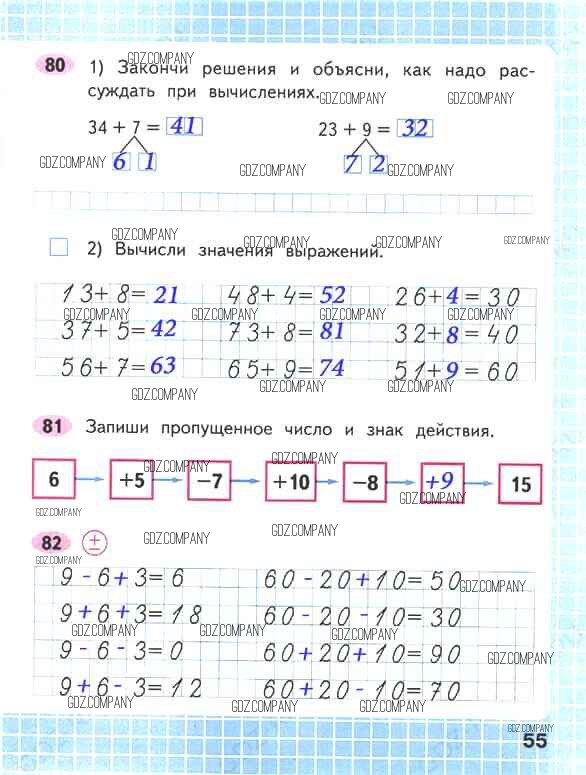 GDZ.COMPANY
80 1) Закончи решения и объясни, как надо рас-
суждать при вычислениях.
GDZ.COMPANY GDZ.COMPANY
34 + 7 = 41 23 + 9 = 32
GDZ.COMPANY 6 1 GDZ.COMPANY 7 2 GDZ.COMPANY
GDZ.COMPANY GDZ.COMPANY GDZ.COMPANY
2) Вычисли значения выражений.
13+8=21 48+4=52 26+4=30
GDZ.COMPANY GDZ.COMPANY GDZ.COMPANY
37+5=42 73+8=81 32+8=40
56+7=63 65+9=74 51+9=60
GDZ.COMPANY GDZ.COMPANY GDZ.COMPANY
81 Запиши пропущенное число и знак действия.
GDZ.COMPANY GDZ.COMPANY
6 +5 −7 +10 −8 +9 15
GDZ.COMPANY
GDZ.COMPANY
82 ± GDZ.COMPANY GDZ.COMPANY
GDZ.COMPANY
9-6+3=6 60-20+10=50
GDZ.COMPANY
9+6+3=18 60-20-10=30
GDZ.COMPANY GDZ.COMPANY GDZ.COMPANY
9-6-3=0 60+20+10=90
GDZ.COMPANY
9+6-3=12 60+20-10=70
GDZ.COMPANY GDZ.COMPANY GDZ.COMPANY
GDZ.COMPANY
55